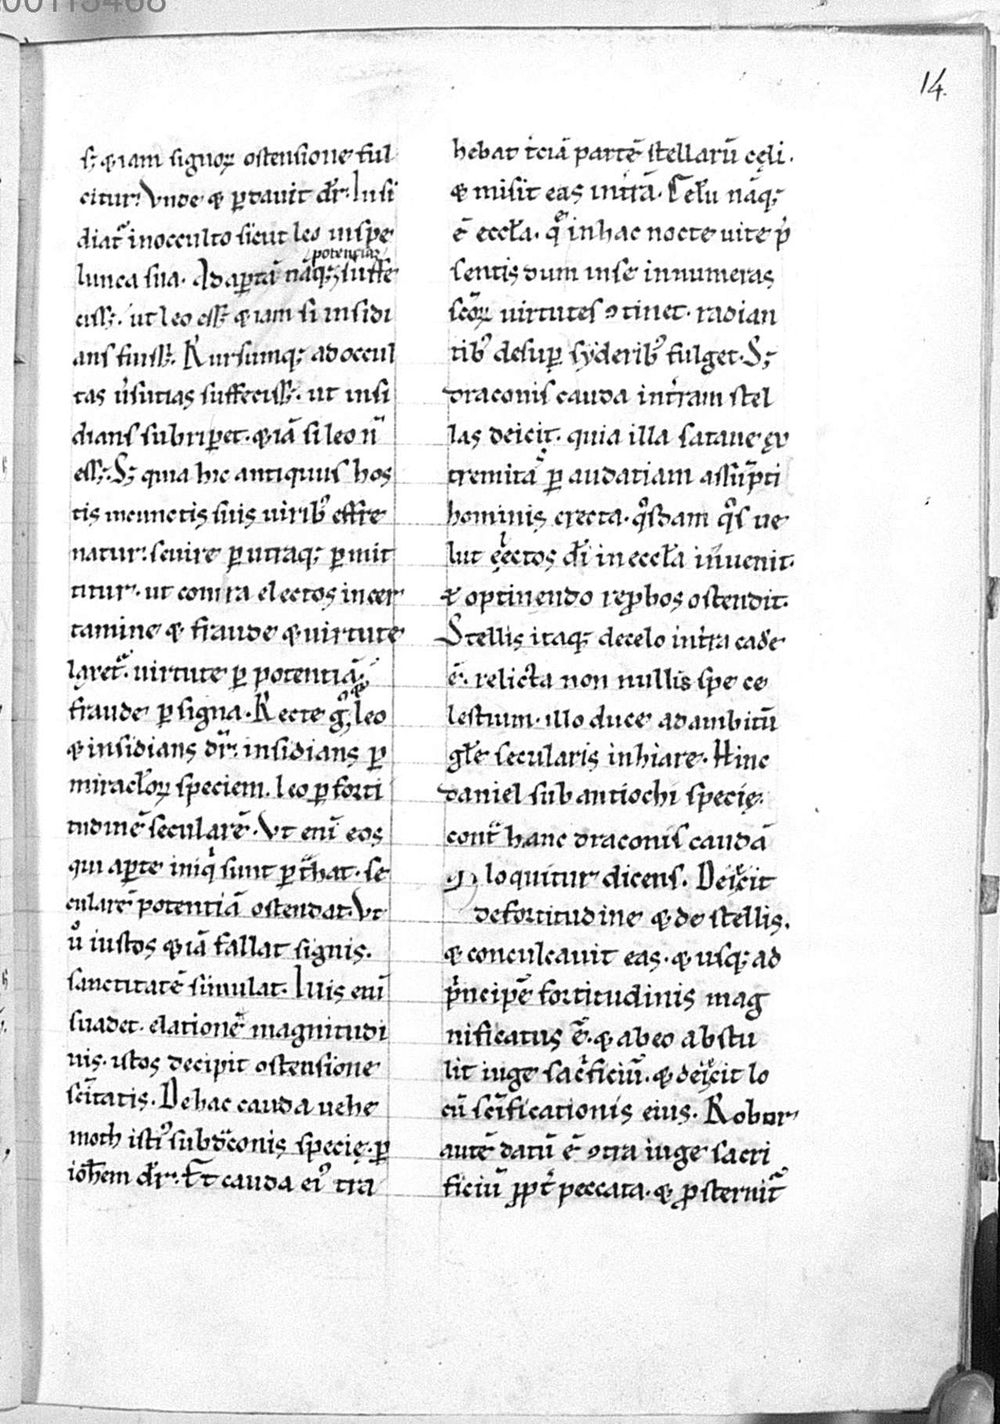 00113468
14.
s; & iam signoꝝ ostensione ful
citur. Vnde & ꝑ dauit dr̄. Insi
diat᷑ in occulto sicut leo in spe
lunca sua. Ad aꝑtā nāq; potentiā suffe
ciss;. ut leo ess; & iam si insidi
ans fuiss;. Rursumq; ad occul
tas ūsutias suffeciss;. ut insi
dians subriꝑet. & iā si leo n̄
ess;. S; quia hic antiquus hos
tis in cunctis suis uirib; effre
natur. seuire ꝑ utraq; ꝑmit
titur. ut contra electos in cer
tamine & fraude & uirtute
lgret᷑. uirtute ꝑ potentiā.
fraude ꝑ signa. Recte g̊ & leo
& insidians dr̄. insidians ꝑ
miracl̄oꝝ speciem. leo ꝑ forti
tudinē secularē. Vt enī eos
qui aꝑte iniq̇ sunt ꝑt᷑hat. se
cularē potentiā ostendat. Vt
ů iustos & iā fallat signis.
sanctitatē simulat. Illis enī
suadet. elationē magnitudi
nis. istos decipit ostensione
scītatis. De hac cauda uehe
moth isti᷒ sub dc̄onis specię. ꝑ
ioh̄em dr̄. Et cauda ei᷒ tra
hebat t̄ciā partē stellarū cęli.
& misit eas in t̄rā. Celū nāq;
ē eccl̄a. q̄ in hac nocte uite p̄
sentis dum in se innumeras
scōꝝ uirtutes ꝯtinet. radian
tib; desuꝑ syderib; fulget. S;
draconis cauda in t̄ram stel
las deicit. quia illa satane ex
tremitas ꝑ audatiam assūpti
hominis erecta. q̊sdam q̊s ue
lut electos dī in eccl̄a inuenit.
& optinendo reꝓbos ostendit.
Stellis itaq; de celo in t̄ra cade
ē. relicta non nullis spe ce
lestium. illo duce ad ambitū
gl̄e secularis inhiare. Hinc
daniel sub antiochi specię.
cont̄ hanc draconis caudā
loquitur dicens. Deiecit
de fortitudine & de stellis.
& conculcauit eas. & usq; ad
p̄ncipē fortitudinis mag
nificatus ē. & ab eo abstu
lit iuge sac̄ficiū. & deiecit lo
cū scīficationis eius. Robur
autē datū ē ꝯtra iuge sacri
ficiū ꝓpt̄ peccata. & ꝓsternit᷑